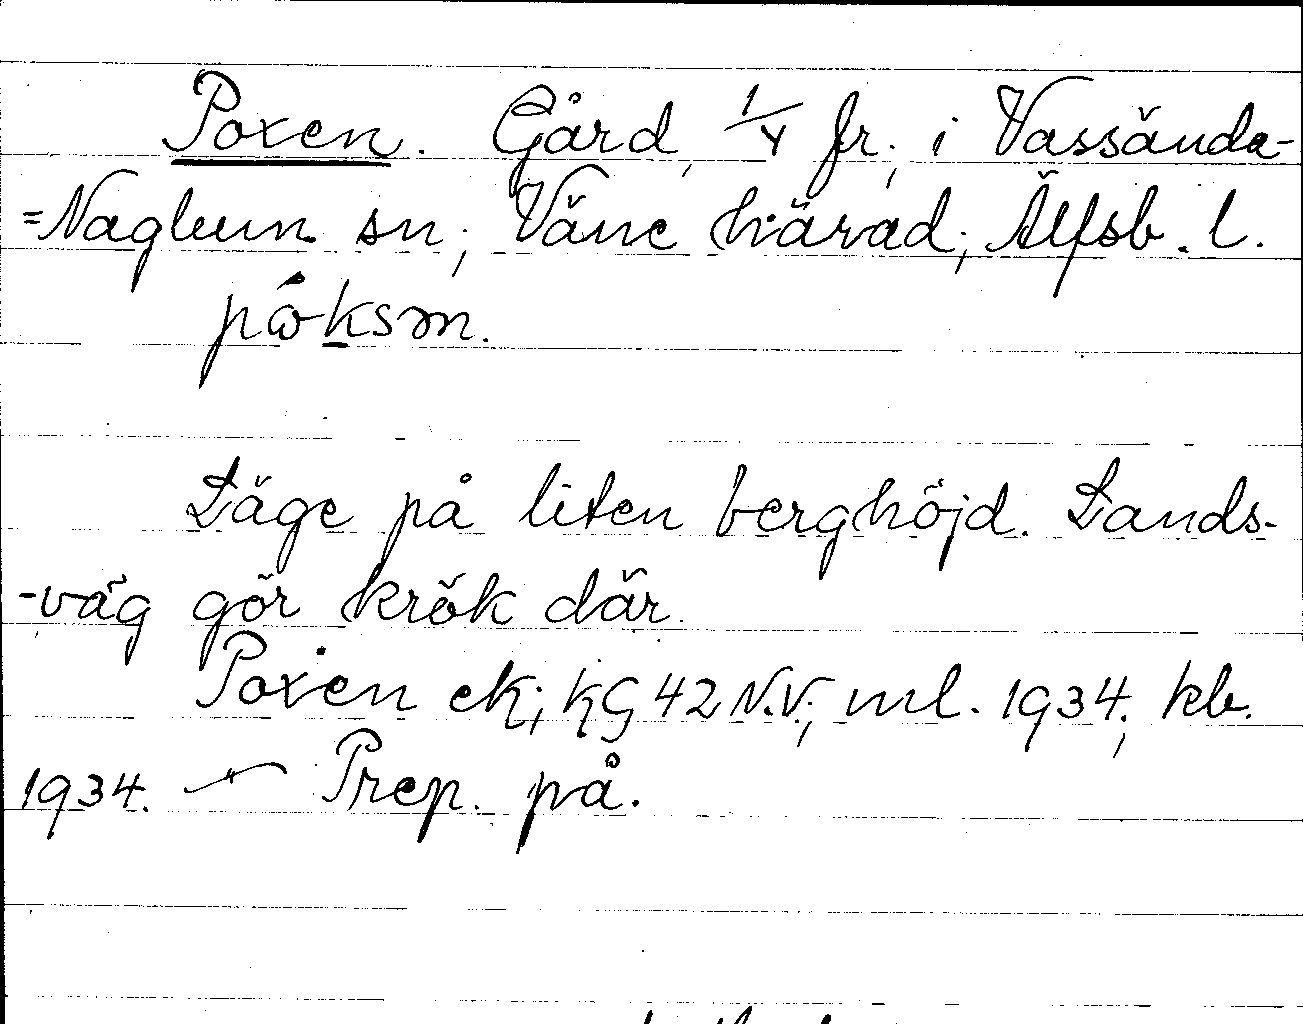 Poxen. Gård, 1/4 fr., i Vassända-
=Naglum sn, Väne härad, Älfsb. l.
Läge på liten berghöjd. Lands-
-väg gör krök där.
Poxen ek, KG 42 N.V., ml. 1934, kb.
1934. — Prep. på.